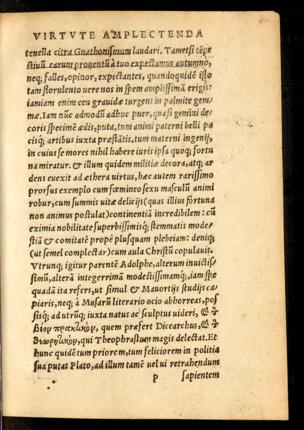 VIRTVTE AMPLECTENDA
tenella citra Gnathonismum laudari. Tametsi tẽpe
stiuũ earum prouentũ à tuo expectamus autumno,
neq; falles, opinor, expectantes, quandoquidẽ isto
tam florulento uere nos in spem amplissimã erigis:
iamiam enim ceu grauidæ turgent in palmite gem-
mæ. Iam nũc admodũ adhuc puer, quasi gemini de-
coris specimẽ ædis, puta, tum animi paterni belli pa
cisq; artibus iuxta præstãtis, tum materni ingenij,
in cuius se mores nihil habere iuris ipsa quoq; fortu
na miratur. & illum quidem militiæ decora, atq; ar
dens euexit ad æthera uirtus, hæc autem rarissimo
prorsus exemplo cum fœmineo sexu masculũ animi
robur, cum summis uitæ delicijs (quas illius fortuna
non animus postulat) continentiã incredibilem: cũ
eximia nobilitate superbissimisq; stemmatis mode-
stiã & comitatẽ propè plusquam plebeiam: deniq;
(ut semel complectar) cum aula Christũ copulauit.
Vtrunq; igitur parentẽ Adolphe, alterum inuictis/
simũ, alterã integerrimã modestissimamq;, iam spe
quadã ita refers, ut simul & Mauortijs studijs ca/
piaris, neq; à Musarũ literario ocio abhorreas, pos/
sisq; ad utrũq; iuxta natus ac sculptus uideri, & τ̀
βίον πρακτικὸν, quem præfert Dicearchus, & τ̀
θεωρητικὸν, qui Theophrastum magis delectat. Et
hunc quidẽ tum priorem, tum feliciorem in politia
sua putat Plato, ad illum tamẽ uel ui retrahendum
p sapientem